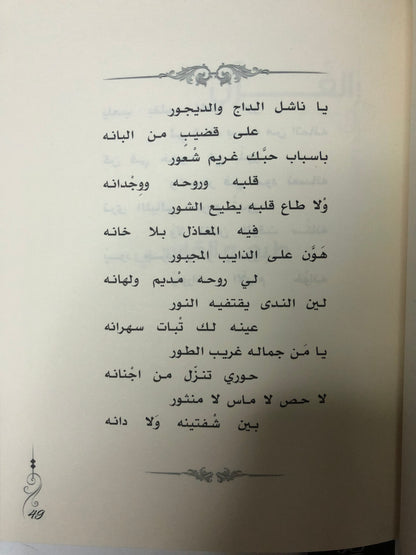 يا ناشل الداج والديجور
على قضيبٍ من البانه
باسباب حبَّك غريم شْعور
قلبه وروحه ووِجْدانه
وْلا طاع قلبه يطيع الشور
فيه المعاذل بلا خانه
هَوَّن على الذايب المجبور
لي روحه مْديم ولهانه
لين الندى يقتفيه النور
عينه لك تْبات سهرانه
يا مَن جماله غريب الطور
حوري تنزَّل من اجْنانه
لا حص لا ماس لا منثور
بين شْفتينه وَلا دانه
49